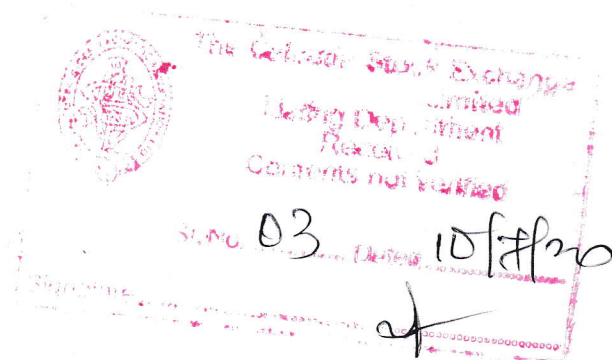 The Calcutta Stock Exchange
Limited
Listing Department
Received
Contents not verified
Sl. No. 03 Dated 10/7/20
Signature